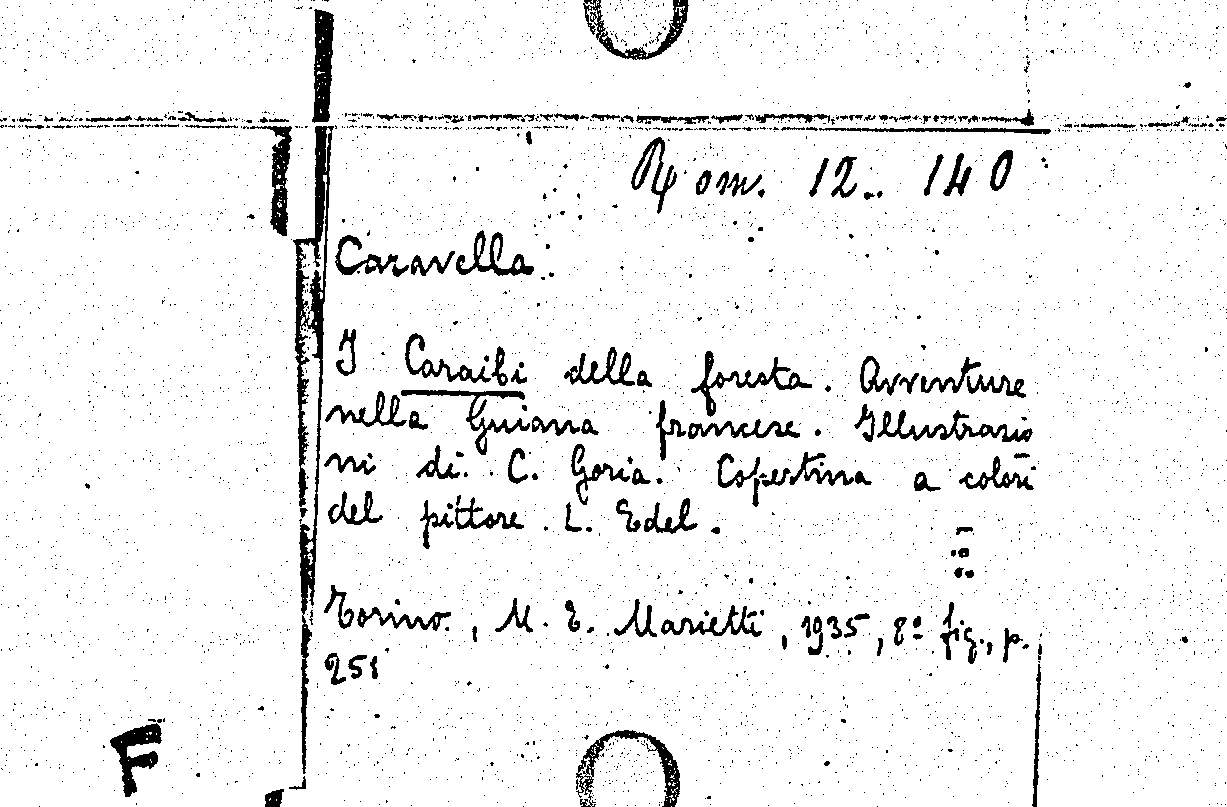 Rom. 12.. 140
Caravella.
I Caraibi della foresta. Avventure
nella Guiana francese. Illustrazio
ni di C. Goria. Copertina a colori
del pittore L. Edel.
Torino, M. E. Marietti, 1935, 8º fig., p.
251
F